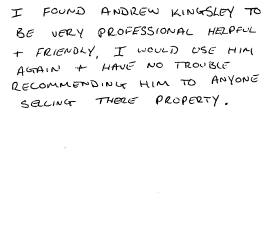 I FOUND ANDREW KINGSLEY TO
BE VERY PROFESSIONAL HELPFUL
+ FRIENDLY, I WOULD USE HIM
AGAIN + HAVE NO TROUBLE
RECOMMENDING HIM TO ANYONE
SELLING THERE PROPERTY.